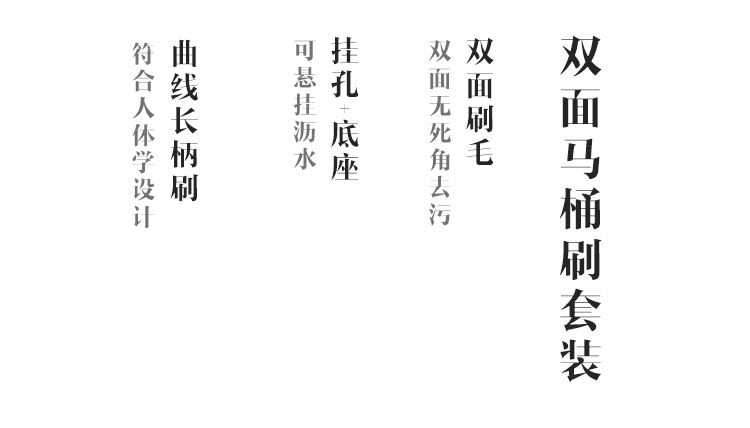 双面马桶刷套装
双面刷毛
双面无死角去污
挂孔+底座
可悬挂沥水
曲线长柄刷
符合人体学设计